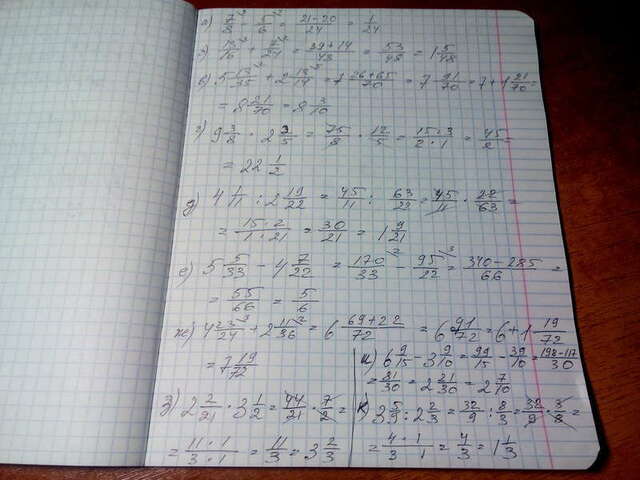 а) 7/8 - 5/6 = 21-20/24 = 1/24
13/16 + 7/24 = 39+14/48 = 53/48 = 1 5/48
5 13/35 + 2 13/14 = 7 26+65/70 = 7 91/70 = 7+1 21/70 =
= 8 21/70 = 8 3/10
г) 9 3/8 · 2 2/5 = 75/8 · 12/5 = 15·3/2·1 = 45/2 =
= 22 1/2
д) 4 1/11 : 2 19/22 = 45/11 : 63/22 = 45/11 · 22/63 =
= 15·2/1·21 = 30/21 = 1 9/21
е) 5 5/33 - 4 7/22 = 170/33 - 95/22 = 340-285/66 =
= 55/66 = 5/6
ж) 4 23/24 + 2 11/36 = 6 69+22/72 = 6 91/72 = 6+1 19/72
= 7 19/72
и) 6 9/15 - 3 9/10 = 99/15 - 39/10 = 198-117/30
= 81/30 = 2 21/30 = 2 7/10
з) 2 2/21 · 3 1/2 = 44/21 · 7/2 =
= 11·1/3·1 = 11/3 = 3 2/3
к) 3 5/9 : 2 2/3 = 32/9 : 8/3 = 32/9 · 3/8 =
= 4·1/3·1 = 4/3 = 1 1/3